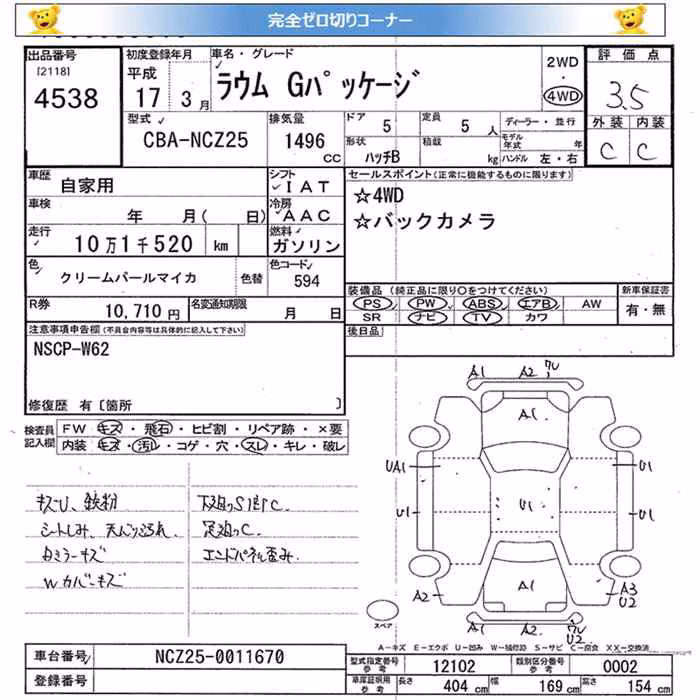 完全ゼロ切りコーナー
出品番号
[2118]
4538
初度登録年月
平成
17 3月
車名・グレード
ラウム Gパッケージ
2WD
・
4WD
評価点
3.5
外装 内装
C C
型式
CBA-NCZ25
排気量
1496
CC
ドア
5
定員
5 人
ディーラー・並行
形状
ハッチB
積載
kg
モデル年式
年
ハンドル 左・右
車歴
自家用
シフト
IAT
車検
年 月( 日)
冷房
AAC
走行
10万1千520 km
燃料
ガソリン
色
クリームパールマイカ
色替
色コード
594
R券
10,710円
名変通知期限
月 日
セールスポイント(正常に機能するものに限ります)
☆4WD
☆バックカメラ
装備品 (純正品に限り○をつけてください)
PS PW ABS エアB AW
SR ナビ TV カワ
新車保証書
有・無
後日品
注意事項申告欄(不具合内容等は具体的に記入して下さい)
NSCP-W62
修復歴 有〔箇所 〕
検査員
記入欄
FW キズ・飛石・ヒビ割・リペア跡・×要
内装 キズ・汚レ・コゲ・穴・スレ・キレ・破レ
キズU、鉄粉
シートしみ、天バリ汚れ
Wカバーキズ
下廻りS
足廻りC
エンドパネル歪み
A1 A2 ワレ
A1
UA1 U1
U1 U1 U1
A1
A2 A3
U2
A1 A2 ワレ
U2
スペア
A-キズ E-エクボ U-凹み W-補修跡 S-サビ C-腐食 XX-交換済
車台番号
NCZ25-0011670
登録番号
型式指定番号
参考
12102
類別区分番号
参考
0002
車庫証明用
参考
長さ
404 cm
幅
169 cm
高さ
154 cm